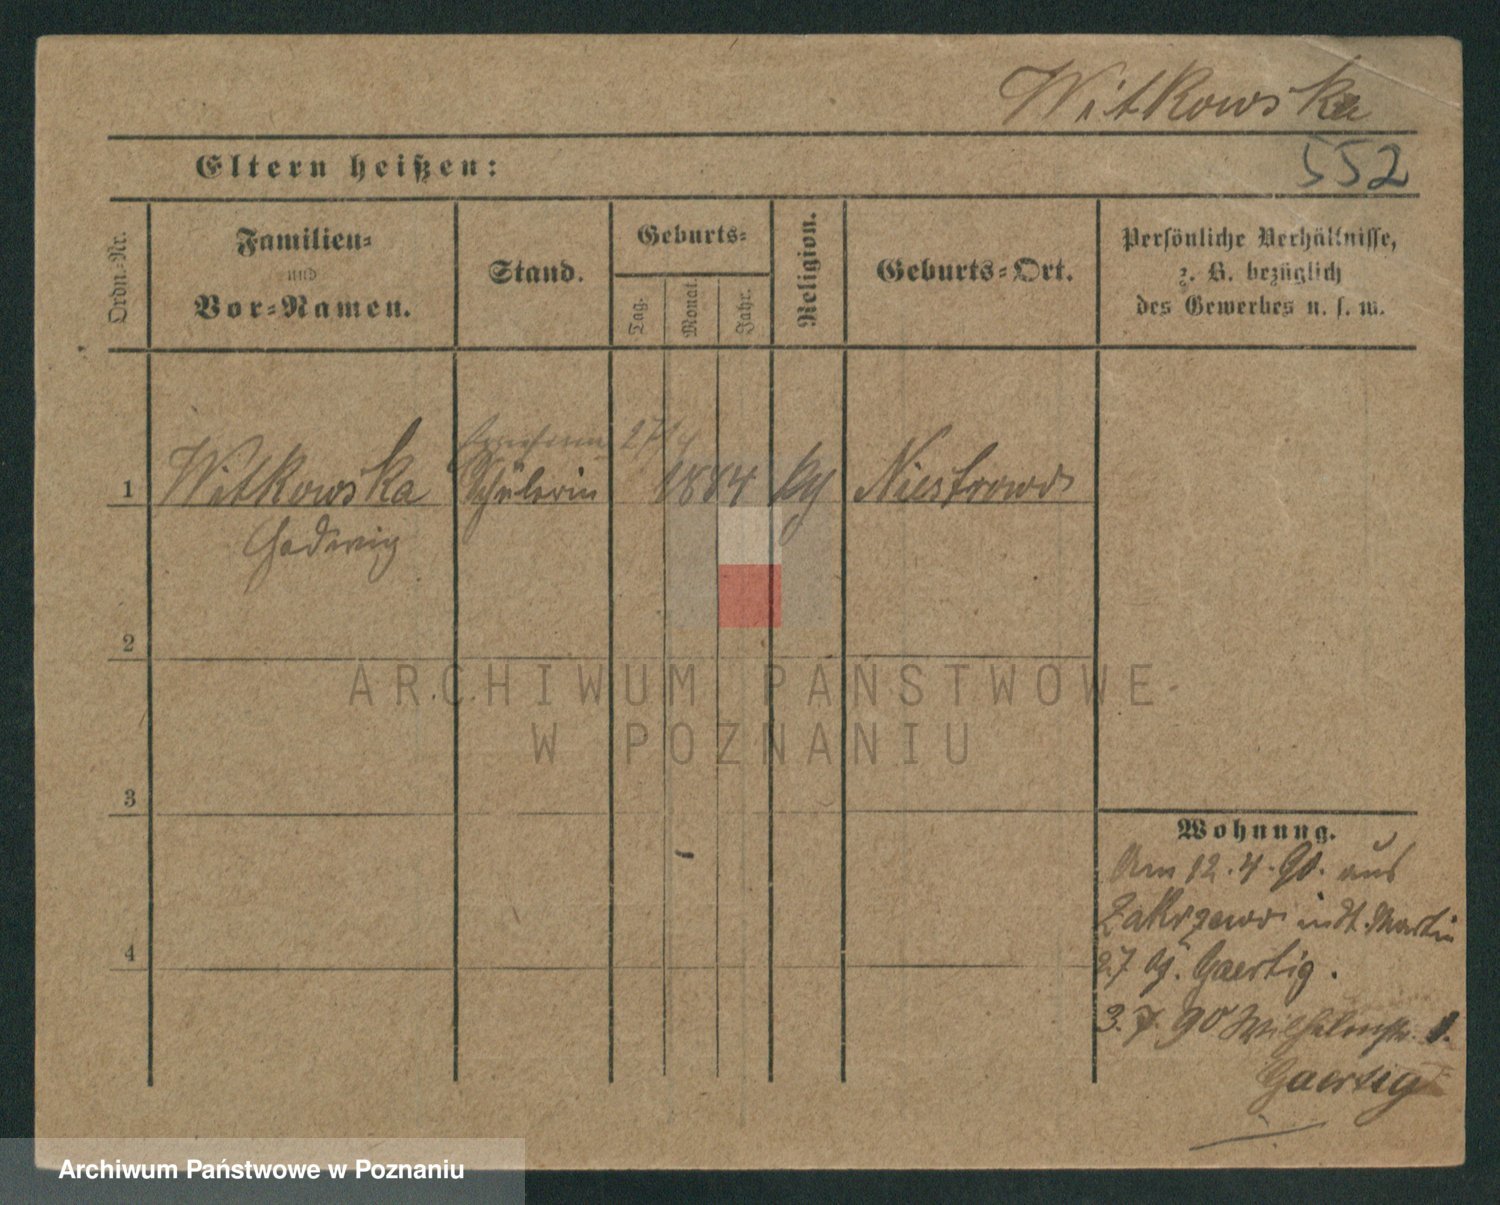 Witkowska
Eltern heißen:
552
Ordn.-Nr.
Familien-
und
Vor-Namen.
Stand.
Geburts-
Tag.
Monat.
Jahr.
Religion.
Geburts-Ort.
Persönliche Verhältnisse,
z. B. bezüglich
des Gewerbes u. s. w.
1 Witkowska Schülerin 27/4 1884 kg Niestrowo
Hedwig
2
3
4
Wohnung.
Am 12.4.90. aus
Zakrzewo in St. Martin
27 bj. Gaertig.
3.7.90 Wilhelmstr. 8.
Gaertig
ARCHIWUM PAŃSTWOWE
W POZNANIU
Archiwum Państwowe w Poznaniu